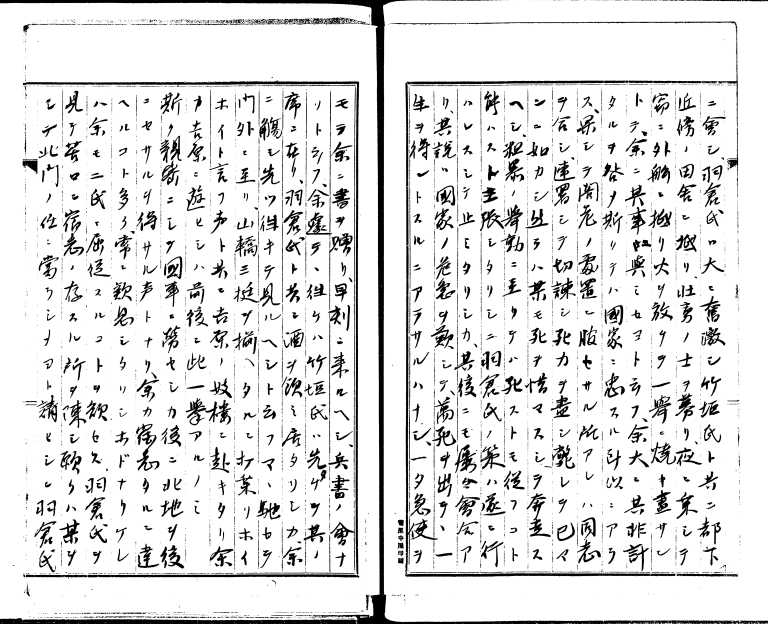 ニ會シ、羽倉氏ハ大ニ奮激シ竹垣氏ト共ニ部下
近傍ノ田舎ニ抵リ壮勇ノ士ヲ募リ夜ニ乗シテ
窃ニ外船ニ抵リ火ヲ放チ一擧ニ焼キ盡サン
トテ、余ニ其事ニ與ミセヨト云フ、余大ニ其非計
タルヲ咎メ斯リテハ國家ニ忠スル所以ニアラ
ス、果シテ閣老ノ處置ニ服セサル所アレハ同志
ヲ合シ連署シテ切諫シ死力ヲ盡シ斃レテ已マ
ンニ如カシ然ラハ某モ死ヲ惜マスシテ奔走ス
ヘシ、粗暴ノ擧動ニ至リテハ死ストモ從フコト
能ハスト主張シタリシニ羽倉氏ノ策ハ遂ニ行
ハレスシテ止ミタリシカ、其後ニモ屡々會合ア
リ、其説ハ國家ノ危急ヲ歎シテ萬死ヲ出テ、一
生ヲ得ントスルニアラサルハナシ、一夕急使ヲ
モテ余ニ書ヲ贈リ、早刻ニ來ルヘシ、兵書ノ會ナ
リト云フ、余遽テ往ケハ竹垣氏ハ先ツ其ノ
席ニ在リ、羽倉氏ト共ニ酒ヲ飲ミ居タリシカ余
ニ觴シ先ツ往キテ見ルヘシト云フマヽ馳セテ
門外ニ至リ、山轎三挺ヲ揃ヘタルニ打乗リホイ
ホイト言フ声ト共ニ吉原ノ妓樓ニ赴キタリ余
カ吉原ニ遊ヒシハ前後ニ此一擧アルノミ
斯ク親密ニシテ國事ニ労セシカ後ニ北地ヲ後
ニセサルヲ得サル声トナリ、余カ宿志タルニ達
ヘルコト多ク、常ニ歎息シタリシホドナリケレ
ハ余モ二氏ニ屈從スルコトヲ額セス、羽倉氏ヲ
見テ苦口ニ宿志ノ存スル所ヲ陳シ願クハ某ヲ
シテ北門ノ任ニ當ラシメヨト請ヒシニ羽倉氏